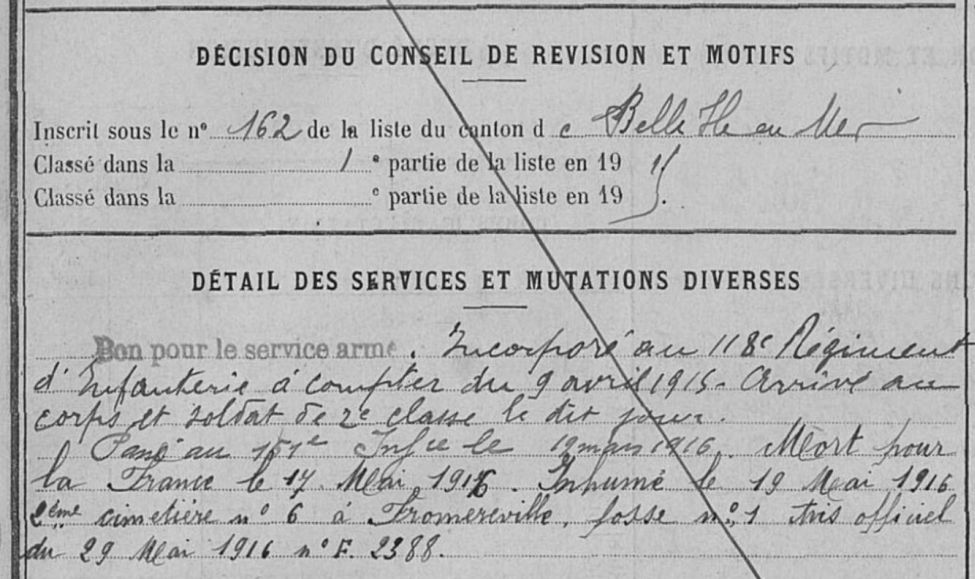 DÉCISION DU CONSEIL DE REVISION ET MOTIFS
Inscrit sous le nº 162 de la liste du canton d e Belle Ile en Mer
Classé dans la 1 e partie de la liste en 19 15
Classé dans la e partie de la liste en 19 .
DÉTAIL DES SERVICES ET MUTATIONS DIVERSES
Bon pour le service armé. Incorporé au 118e Régiment
d'Infanterie à compter du 9 avril 1915. Arrivé au
corps et soldat de 2e classe le dit jour.
Passé au 151e Infie le 19 mars 1916. Mort pour
la France le 17 Mai 1916. Inhumé le 19 Mai 1916
2eme cimetière nº 6 à Fromereville, fosse nº 1 Avis officiel
du 29 Mai 1916 nº F. 2388.